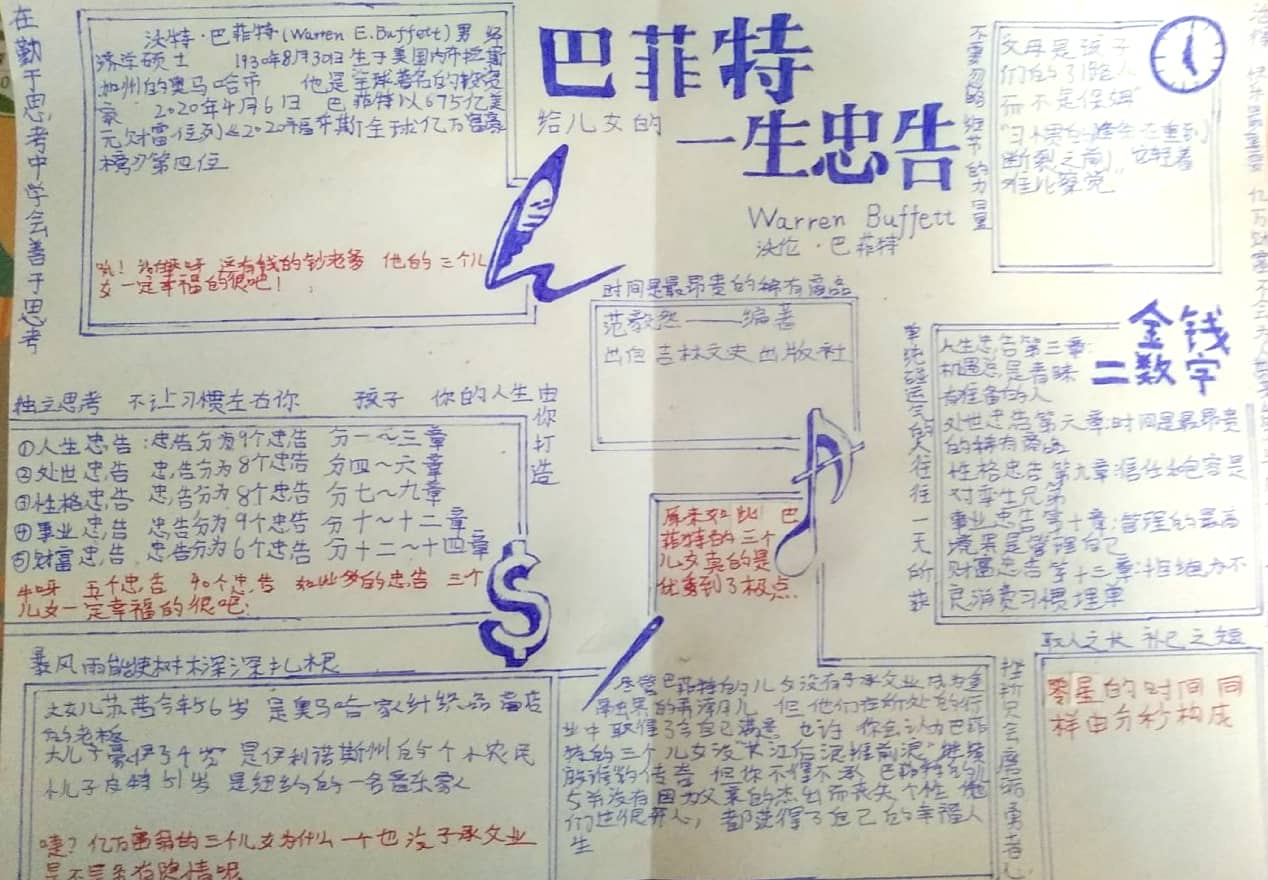 在勤于思考中学会善于思考
沃特·巴菲特(Warren E.Buffett)男 经
济学硕士 1930年8月30日生于美国内布拉斯
加州的奥马哈市 他是全球著名的投资
家 2020年4月6日 巴菲特以675亿美
元财富位列&2020福布斯全球亿万富豪
榜第四位
还有钱的钞老爹 他的三个儿
女一定幸福的很吧!
巴菲特
给儿女的
一生忠告
Warren Buffett
沃伦·巴菲特
不要忽略细节的力量
"父母是孩子
们的引路人
而不是保姆"
断裂之前,它轻着
难以察觉"
时间是最昂贵的稀有商品
范毅然——编著
出自吉林文史出版社
金钱
=数字
单纯碰运气的人往往一无所获
人生忠告第三章:
机遇总是青睐
有准备的人
处世忠告第六章:时间是最昂贵
的稀有商品
性格忠告第九章:信任与包容是
对孪生兄弟
事业忠告第十章:管理的最高
境界是管理自己
财富忠告第十三章:拒绝为不
良消费习惯埋单
独立思考 不让习惯左右你 孩子 你的人生由你打造
①人生忠告:忠告分为9个忠告 分一~三章
②处世忠告 忠告分为8个忠告 分四~六章
③性格忠告 忠告分为8个忠告 分七~九章
④事业忠告 忠告分为9个忠告 分十~十二章
⑤财富忠告 忠告分为6个忠告 分十二~十四章
牛呀 五个忠告 40个忠告 如此多的忠告 三个
儿女一定幸福的很吧!
原来如此 巴
菲特的三个
儿女真的是
优秀到了极点
暴风雨能使树木深深扎根
大女儿苏茜今年56岁 是奥马哈一家针织品商店
的老板
是伊利诺斯州的一个小农民
小儿子皮特51岁 是纽约的一名音乐家
哇?亿万富翁的三个儿女为什么一个也没子承父业
是不是有隐情呢
尽管巴菲特的儿女没有子承父业成为通
但他们在所处的行
业中取得了令自己满意 也许 你会认为巴菲
特的三个儿女没"长江后浪推前浪"继续
传奇 但你不得不承 巴菲特的儿
女并没有因为父亲的杰出而丧失个性 他
们过得很开心,都获得了自己的幸福人
生
挫折只会磨砺勇者心
取人之长 补己之短
零星的时间同
样由分秒构成